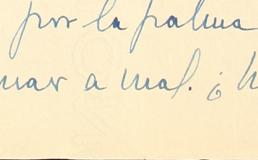 por la palma
mar a mal. ¿